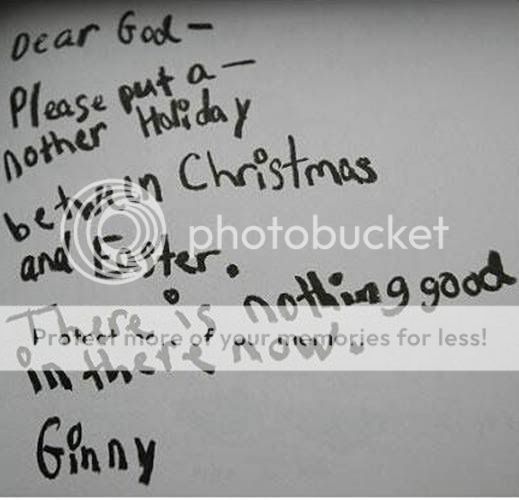 Dear God-
Please put a-
nother Holiday
between Christmas
and Easter.
There is nothing good
in there now.
Ginny
photobucket
Protect more of your memories for less!